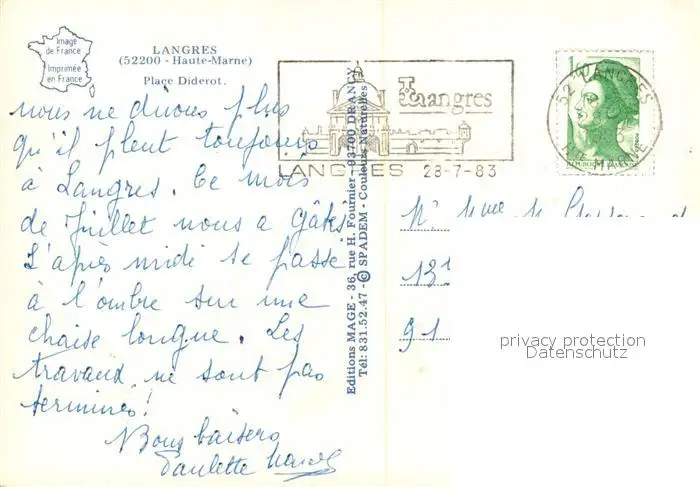 Image
de France
Imprimée
en France
LANGRES
(52200 - Haute-Marne)
Place Diderot.
nous ne dirons plus
qu'il pleut toujours
à Langres. Ce mois
de Juillet nous a gâtés
L'après midi se passe
à l'ombre sur une
chaise longue. Les
travaux ne sont pas
terminés!
Bons baisers
Paulette
Editions MAGE - 36, rue H. Fournier - 93700 DRANCY
Tél: 831.52.47 - © SPADEM - Couleurs Naturelles
Langres
LANGRES 28-7-83
1,60
52 LANGRES
HTE MARNE
Mr Mme
131
91
privacy protection
Datenschutz